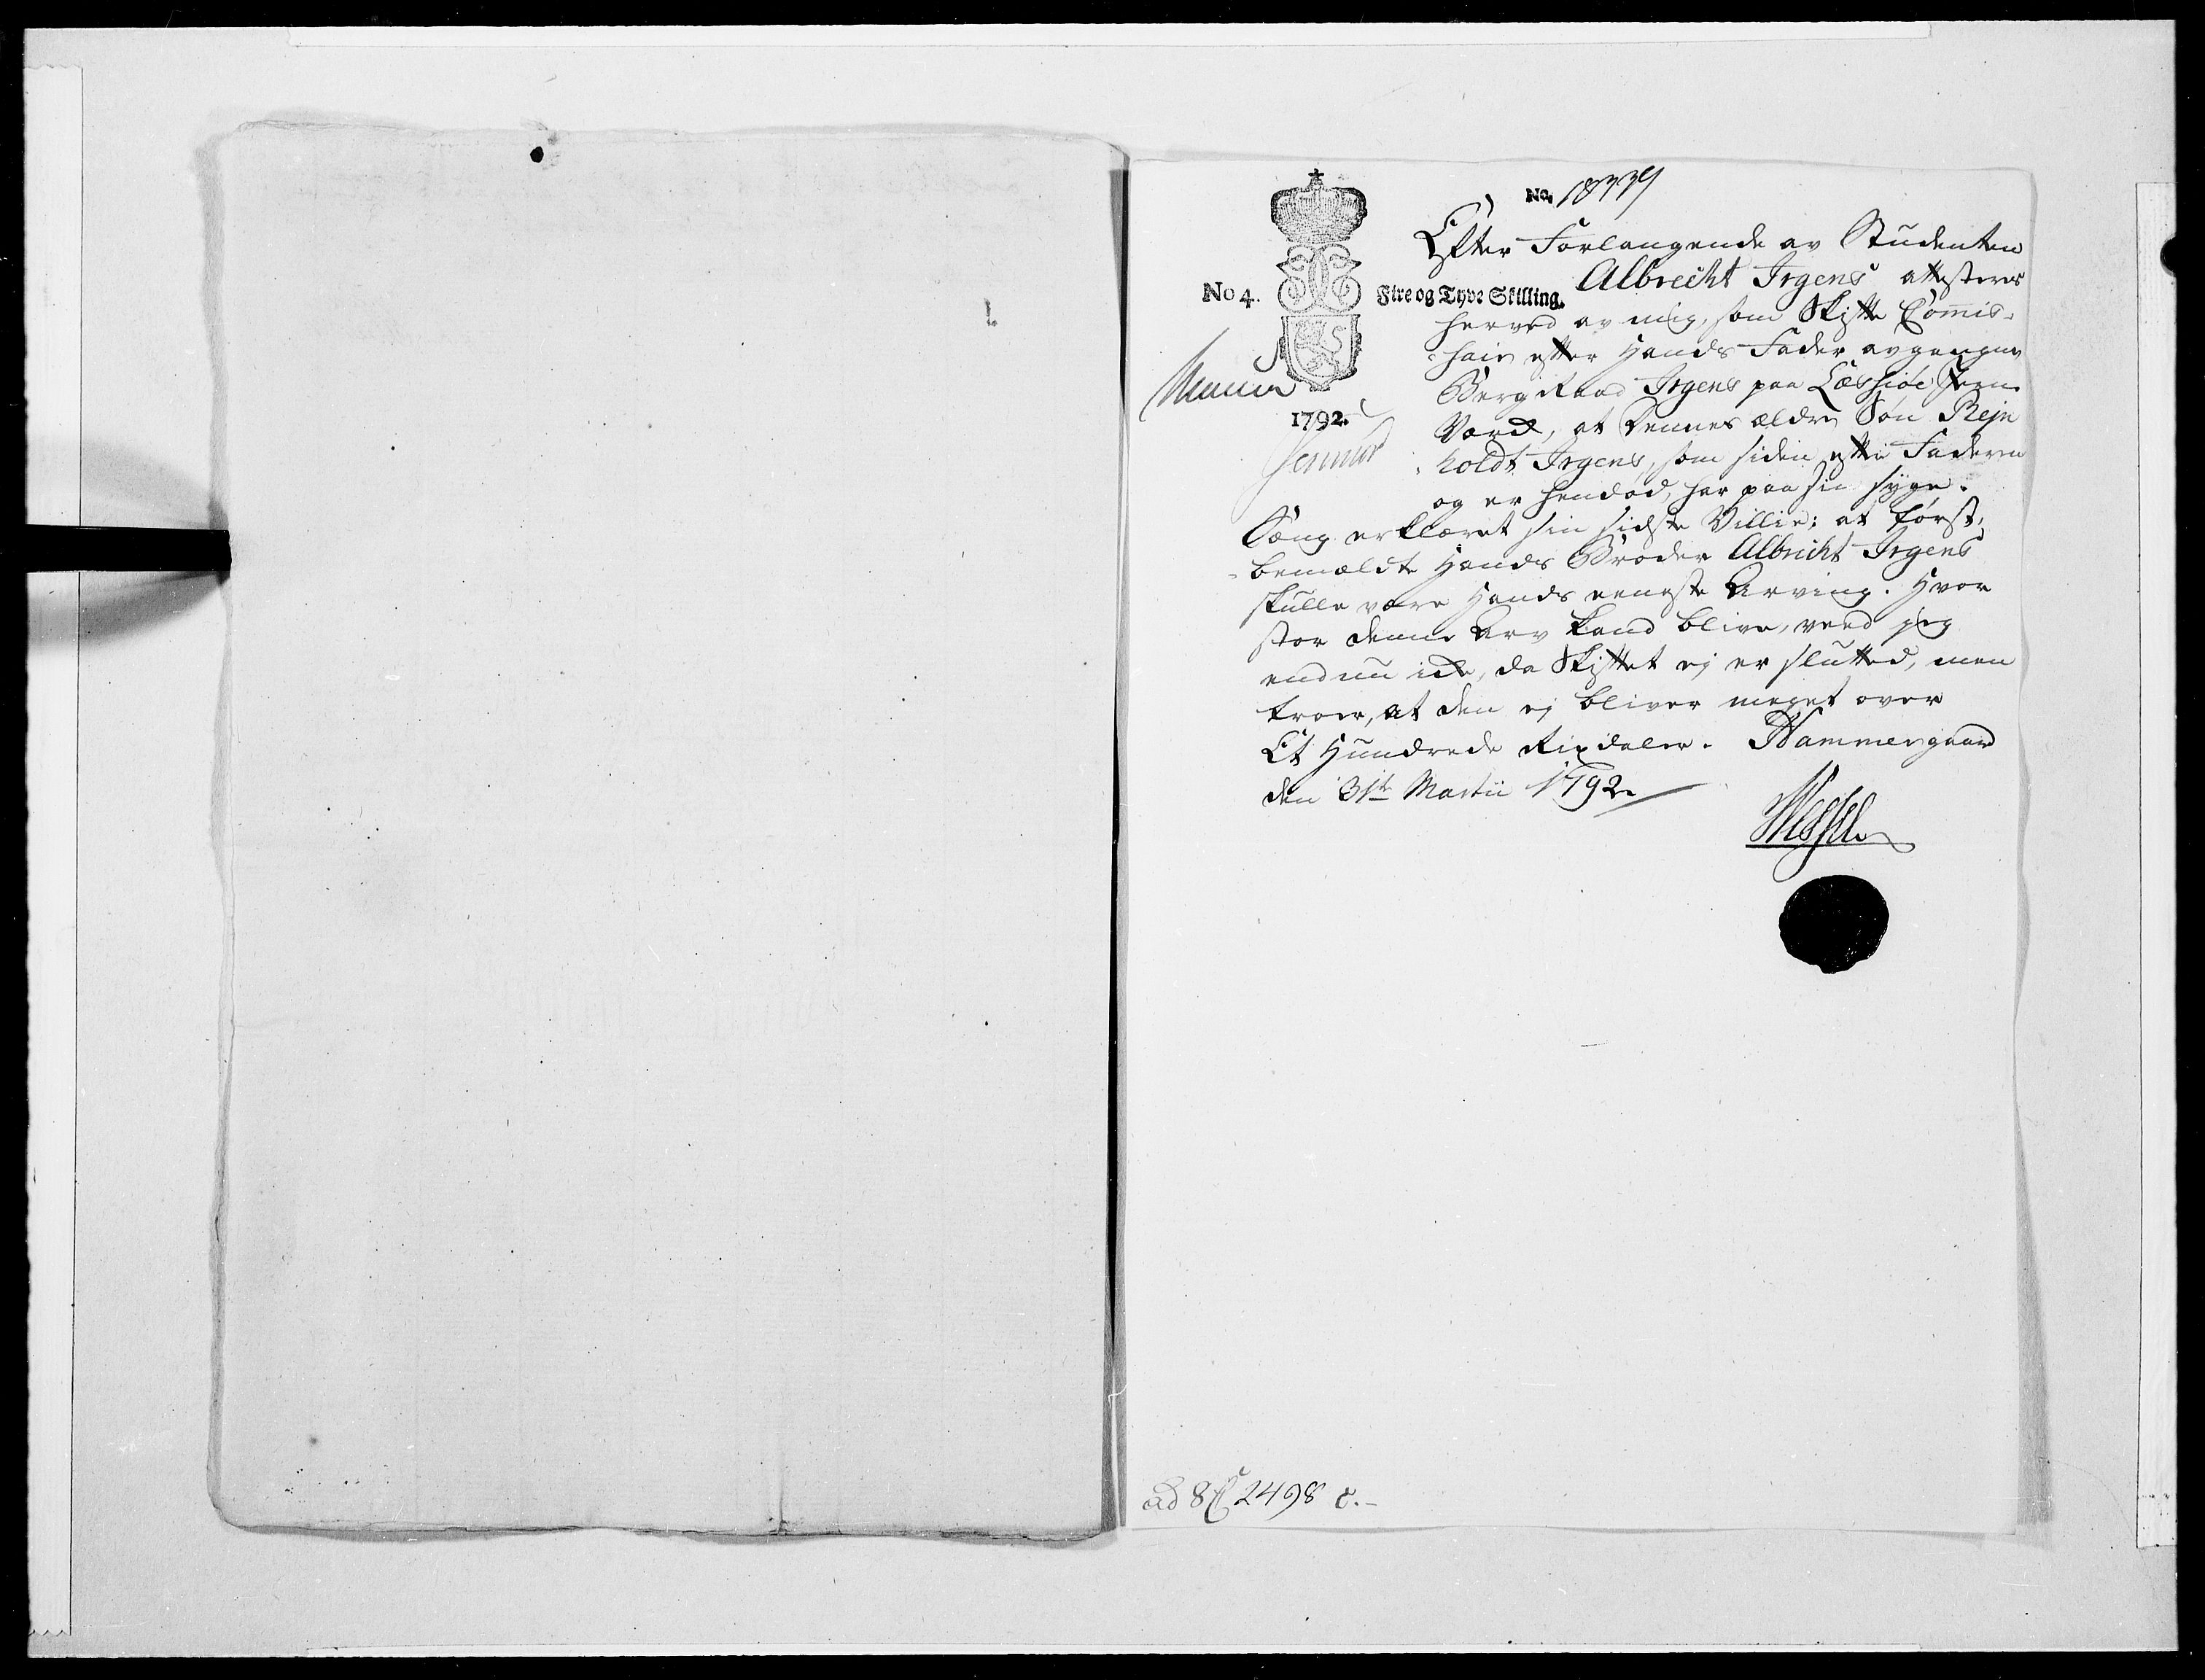 No. 18339
Efter Forlangende av Studenten
Albrecht Irgens attesteres
No 4. Fire og Tyve Skilling.
herved av mig, som Skifte Com̄is-
-sair efter Hands Fader avgangne
BergRaad Irgens paa Læssiøe Jern-
1792.
Værck, at dennes ældre Søn Rejn
-holdt Irgens, som siden efter Faderen
og er hendød, har paa sin syge-
Sæng erklæret sin sidste Villie; at først-
-bemældte Hands Broder Albricht Irgens
skulle være Hands eeneste Arving. Hvor
stor denne Arv kand blive, veed jeg
endnu icke, da Skiftet ej er slutted, men
troer, at den ej bliver meget over
Et Hundrede Rixdaler. Hammergaard
den 31te Martii 1792.
Wessel
ad 2498 c.-